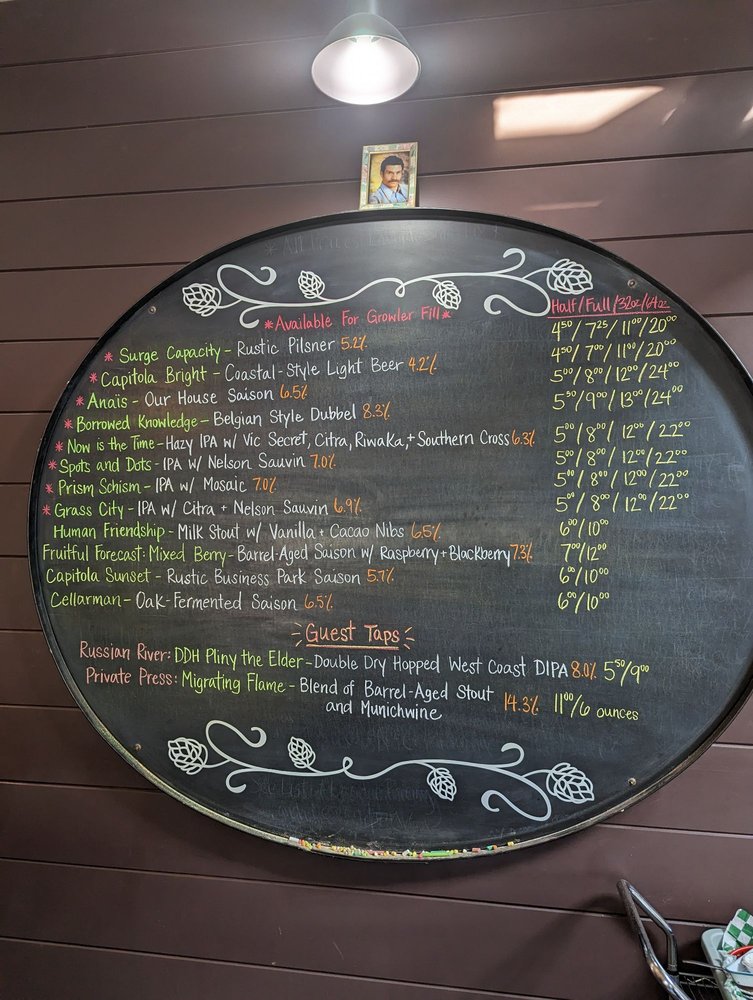 Half/Full/32oz/64oz
*Available For Growler Fill*
*Surge Capacity - Rustic Pilsner 5.2% 4⁵⁰/7²⁵/11⁰⁰/20⁰⁰
*Capitola Bright - Coastal-Style Light Beer 4.2% 4⁵⁰/7⁰⁰/11⁰⁰/20⁰⁰
*Anaïs - Our House Saison 6.5% 5⁰⁰/8⁰⁰/12⁰⁰/24⁰⁰
*Borrowed Knowledge - Belgian Style Dubbel 8.3% 5⁵⁰/9⁰⁰/13⁰⁰/24⁰⁰
*Now is the Time - Hazy IPA w/ Vic Secret, Citra, Riwaka, + Southern Cross 6.3% 5⁰⁰/8⁰⁰/12⁰⁰/22⁰⁰
*Spots and Dots - IPA w/ Nelson Sauvin 7.0% 5⁰⁰/8⁰⁰/12⁰⁰/22⁰⁰
*Prism Schism - IPA w/ Mosaic 7.0% 5⁰⁰/8⁰⁰/12⁰⁰/22⁰⁰
*Grass City - IPA w/ Citra + Nelson Sauvin 6.9% 5⁰⁰/8⁰⁰/12⁰⁰/22⁰⁰
Human Friendship - Milk Stout w/ Vanilla + Cacao Nibs 6.5% 6⁰⁰/10⁰⁰
Fruitful Forecast: Mixed Berry - Barrel-Aged Saison w/ Raspberry + Blackberry 7.3% 7⁰⁰/12⁰⁰
Capitola Sunset - Rustic Business Park Saison 5.7% 6⁰⁰/10⁰⁰
Cellarman - Oak-Fermented Saison 6.5% 6⁰⁰/10⁰⁰
Guest Taps
Russian River: DDH Pliny the Elder - Double Dry Hopped West Coast DIPA 8.0% 5⁵⁰/9⁰⁰
Private Press: Migrating Flame - Blend of Barrel-Aged Stout
and Munichwine 14.3% 11⁰⁰/6 ounces